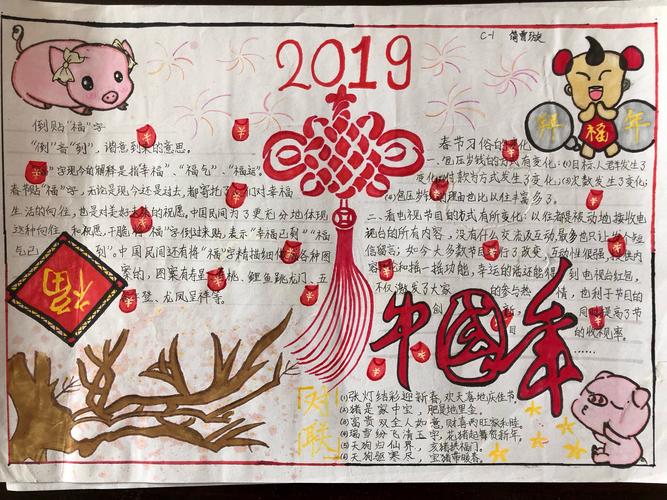 2019
C-1
拜 福 年
倒贴“福”字
“倒”音“到”，谐意到来的意思。
“福”字现今的解释是指“幸福”、“福气”、“福运”。
春节贴“福”字，无论是现今还是过去，都寄托了人们对幸福
生活的向往，也是对美好未来的祝愿，中国民间为了更充分地体现
这种向往和祝愿，干脆将“福”字倒过来贴，表示“幸福已到”“福
气已到”。中国民间还有将“福”字精描细作成各种图
案的，图案有寿星、寿桃、鲤鱼跳龙门、五
登、龙凤呈祥等。
福
春节习俗的变化
一、包压岁钱的方式有变化：(1)目标人群发生了
变化；付款方式发生了变化；(3)次数发生了变化；
(4)包压岁钱的理由也比以往丰富多了。
二、看电视节目的方式有所变化 以往者是被动地接收电
视台的所有内容，没有什么交流及互动，最多也只让发个短
信留言；如今大多数节目进行了改变，互动性很强，根据内
容和摇一摇功能，幸运的话还能得到电视台红包，
不仅激发了大家的参与热情，也利于节目的
创新，同时提高了节
目的收视率。
……
中国年
对联
(1)张灯结彩迎新春，欢天喜地庆佳节。
(2)猪是家中宝，肥是地里金。
(3)富贵双全人如意，财喜两旺家和睦。
(4)瑞雪纷飞清玉宇，花猪起舞贺新年。
(5)天狗归仙界，亥猪拱福门。
(6)天狗驱寒尽，宝猪带暖春。